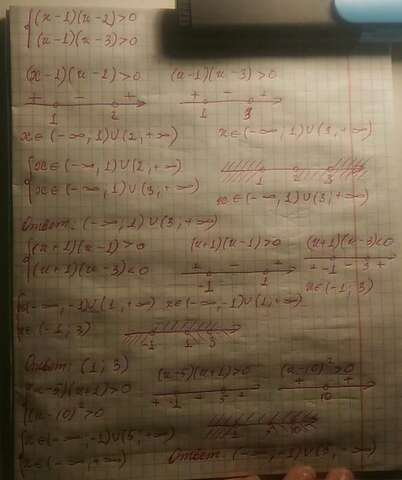 {(x-1)(x-2)>0
{(x-1)(x-3)>0
(x-1)(x-2)>0 (x-1)(x-3)>0
+ - + + - +
1 2 1 3
x∈(-∞,1)∪(2,+∞) x∈(-∞,1)∪(3,+∞)
{x∈(-∞,1)∪(2,+∞)
{x∈(-∞,1)∪(3,+∞)
1 2 3
x∈(-∞,1)∪(3,+∞)
Ответ: (-∞,1)∪(3,+∞)
{(x+1)(x-1)>0 (x+1)(x-1)>0 (x+1)(x-3)<0
{(x+1)(x-3)<0 + - + + -1 - 3 +
-1 1 x∈(-1;3)
{x∈(-∞,-1)∪(1,+∞) x∈(-∞,-1)∪(1,+∞)
{x∈(-1;3)
-1 1 3
Ответ: (1;3)
{(x-5)(x+1)>0 (x-5)(x+1)>0 (x-10)²>0
{(x-10)²>0 + -1 - 5 + + 10 +
{x∈(-∞,-1)∪(5,+∞)
{x∈(-∞,+∞) Ответ: (-∞,-1)∪(5,-∞)